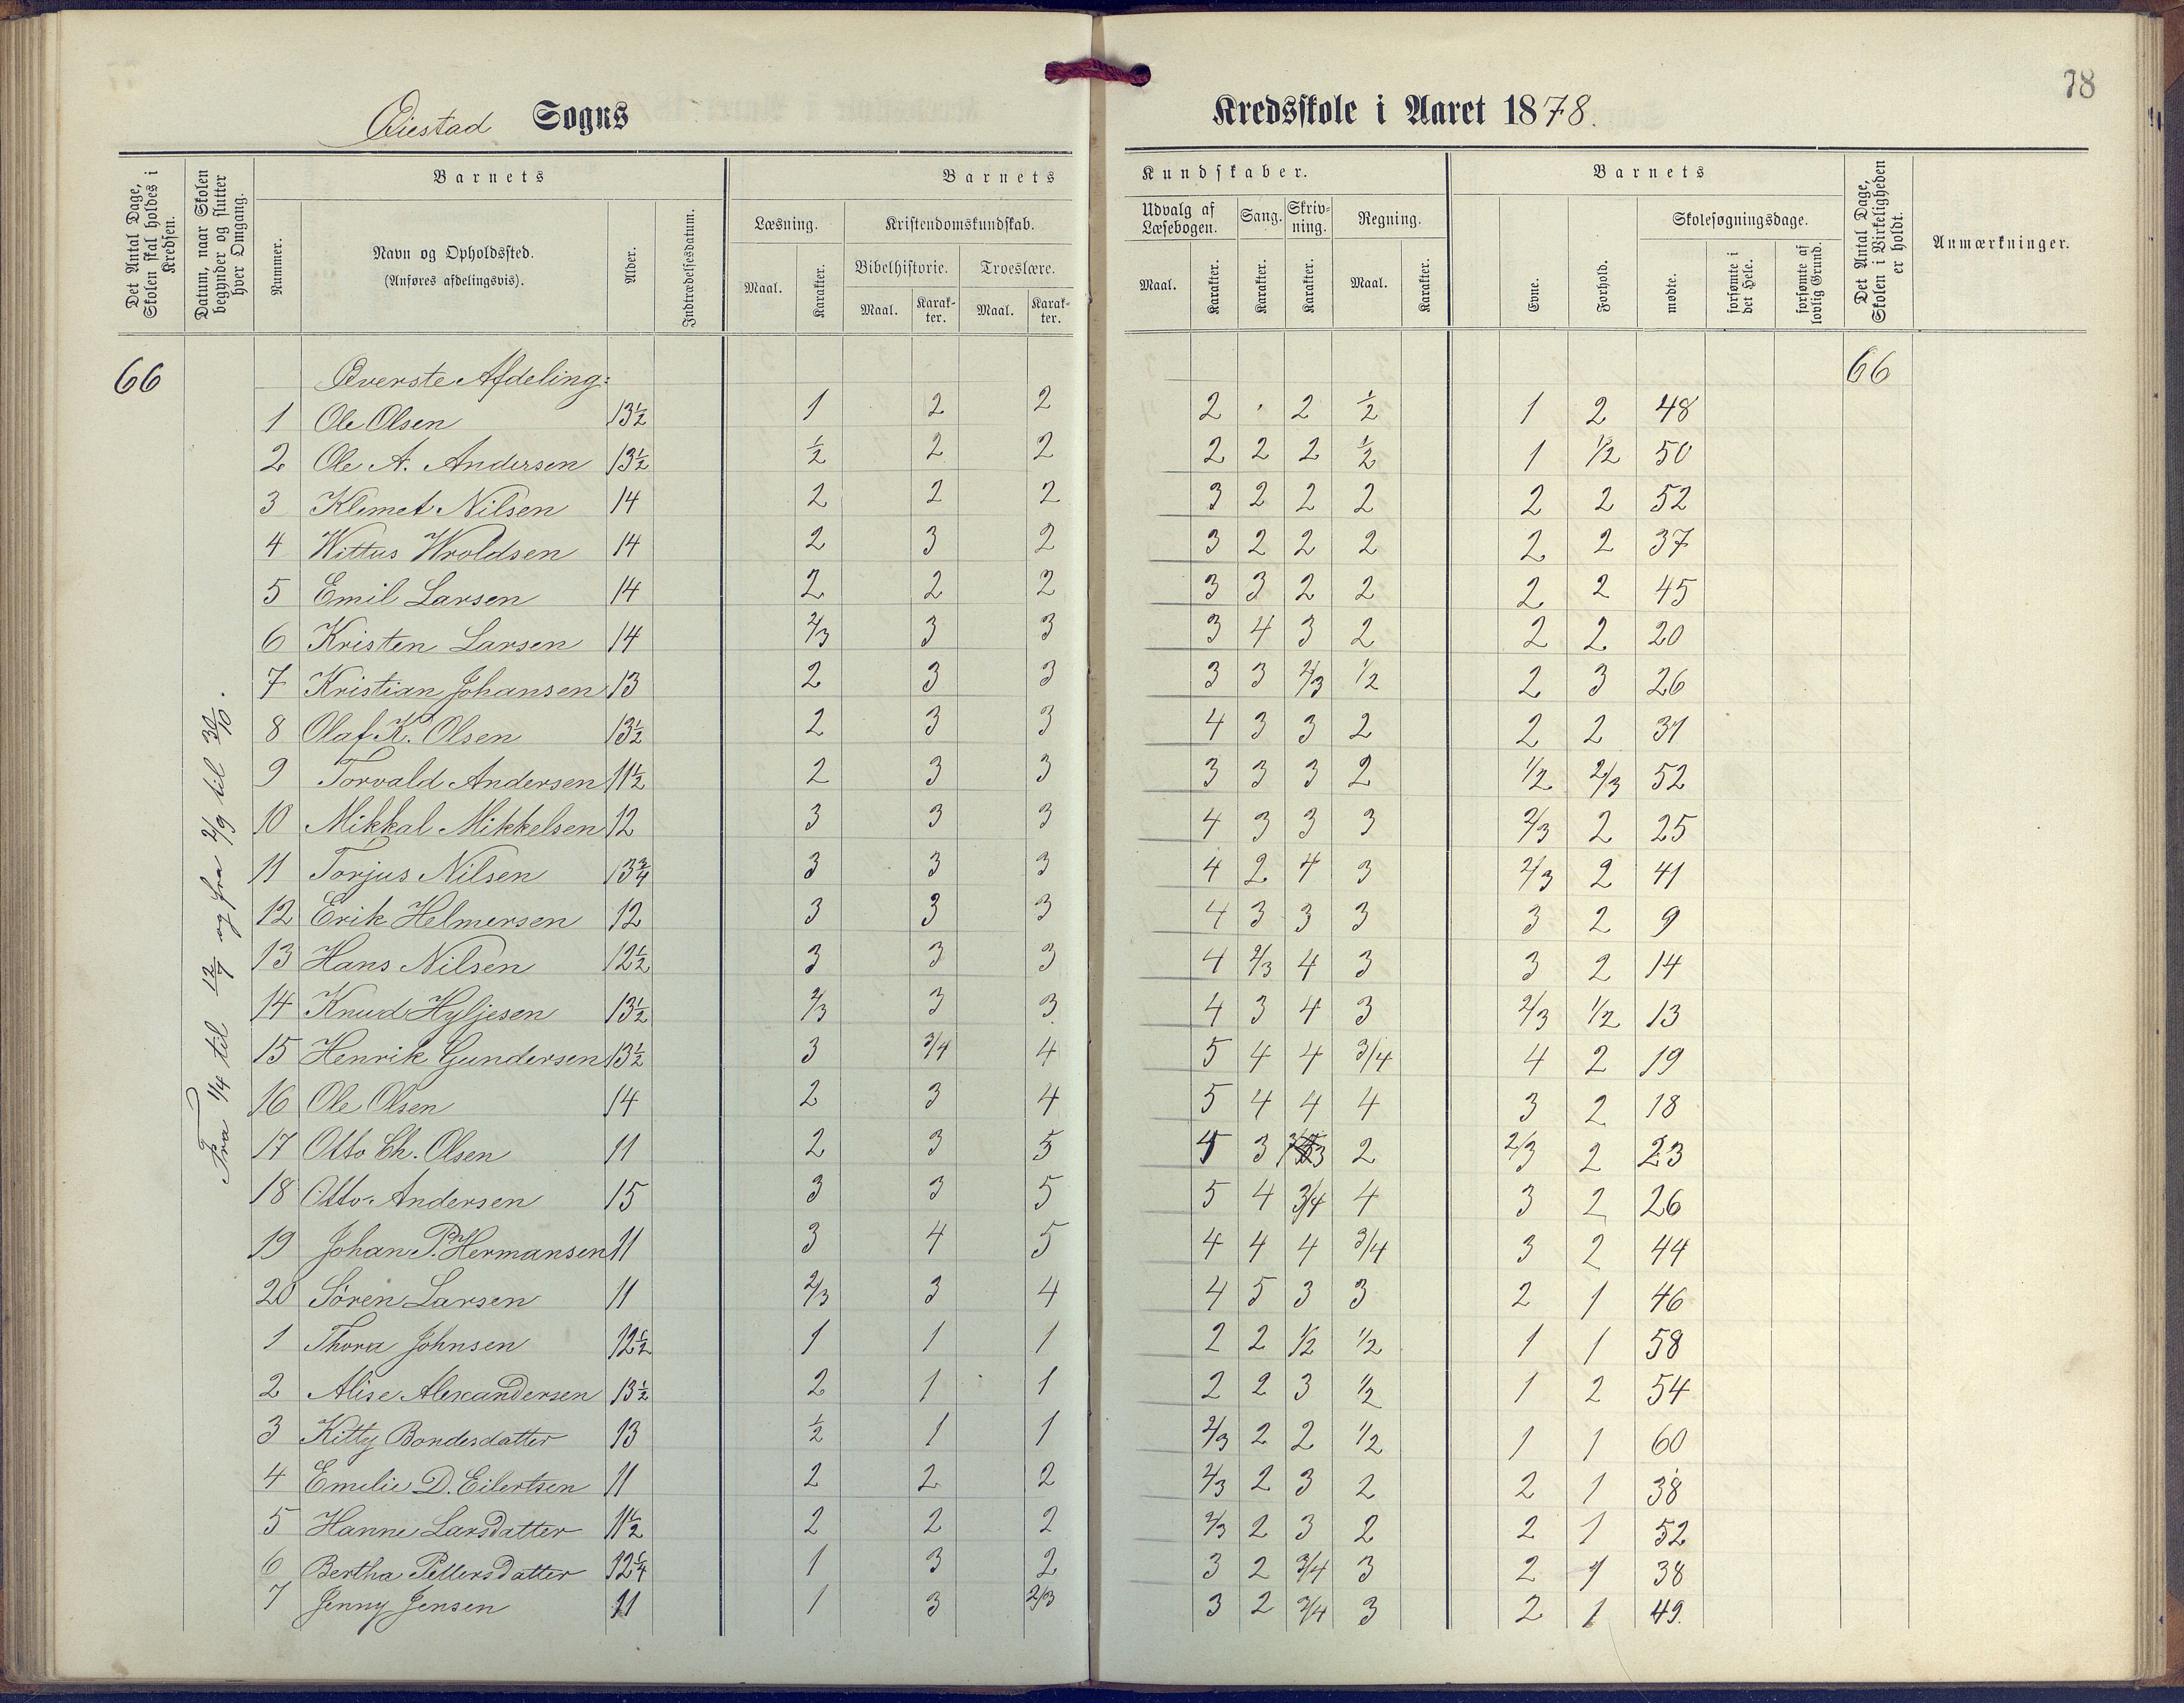 78
Øiestad Sogns Kredsskole i Aaret 1878.
Det Antal Dage, Skolen skal holdes i Kredsen.
Datum, naar Skolen begynder og slutter hver Omgang.
Barnets
Nummer.
Navn og Opholdssted.
(Anføres afdelingsvis).
Alder.
Indtrædelsesdatum.
Barnets Kundskaber.
Læsning.
Maal. Karakter.
Kristendomskundskab.
Bibelhistorie. Troeslære.
Maal. Karakter. Maal. Karakter.
Udvalg af Læsebogen. Sang. Skrivning. Regning.
Maal. Karakter. Karakter. Karakter. Maal. Karakter.
Barnets
Evne. Forhold.
Skolesøgningsdage.
mødte. forsømte i det Hele. forsømte af lovlig Grund.
Det Antal Dage, Skolen i Virkeligheden er holdt.
Anmærkninger.
66 Øverste Afdeling: 66
Fra 1/4 til 12/7 og fra 2/9 til 30/10.
1 Ole Olsen 13½ 1 2 2 2 · 2 ½ 1 2 48
2 Ole A. Andersen 13½ ½ 2 2 2 2 2 ½ 1 1/2 50
3 Klemet Nilsen 14 2 2 2 3 2 2 2 2 2 52
4 Wittus Wroldsen 14 2 3 2 3 2 2 2 2 2 37
5 Emil Larsen 14 2 2 2 3 3 2 2 2 2 45
6 Kristen Larsen 14 2/3 3 3 3 4 3 2 2 2 20
7 Kristian Johansen 13 2 3 3 3 3 2/3 1/2 2 3 26
8 Olaf K. Olsen 13½ 2 3 3 4 3 3 2 2 2 31
9 Torvald Andersen 11½ 2 3 3 3 3 3 2 1/2 2/3 52
10 Mikkal Mikkelsen 12 3 3 3 4 3 3 3 2/3 2 25
11 Torjus Nilsen 13¾ 3 3 3 4 2 4 3 2/3 2 41
12 Erik Helmersen 12 3 3 3 4 3 3 3 3 2 9
13 Hans Nilsen 12½ 3 3 3 4 2/3 4 3 3 2 14
14 Knud Hyljesen 13½ 2/3 3 3 4 3 4 3 2/3 1/2 13
15 Henrik Gundersen 13½ 3 3/4 4 5 4 4 3/4 4 2 19
16 Ole Olsen 14 2 3 4 5 4 4 4 3 2 18
17 Otto Ch. Olsen 11 2 3 5 3 3 2 2/3 2 23
18 Otto Andersen 15 3 3 5 5 4 3/4 4 3 2 26
19 Johan P. Hermansen 11 3 4 5 4 4 4 3/4 3 2 44
20 Sören Larsen 11 2/3 3 4 4 5 3 3 2 1 46
1 Thora Johnsen 12½ 1 1 1 2 2 1/2 1/2 1 1 58
2 Alise Alexandersen 13½ 2 1 1 2 2 3 1/2 1 2 54
3 Kitty Bondesdatter 13 ½ 1 1 2/3 2 2 1/2 1 1 60
4 Emelie D. Eilertsen 11 2 2 2 2/3 2 3 2 2 1 38
5 Hanne Larsdatter 11½ 2 2 2 2/3 2 3 2 2 1 52
6 Bertha Pettersdatter 12¼ 1 3 2 3 2 3/4 3 2 1 38
7 Jenny Jensen 11 1 3 2/3 3 2 3/4 3 2 1 49.